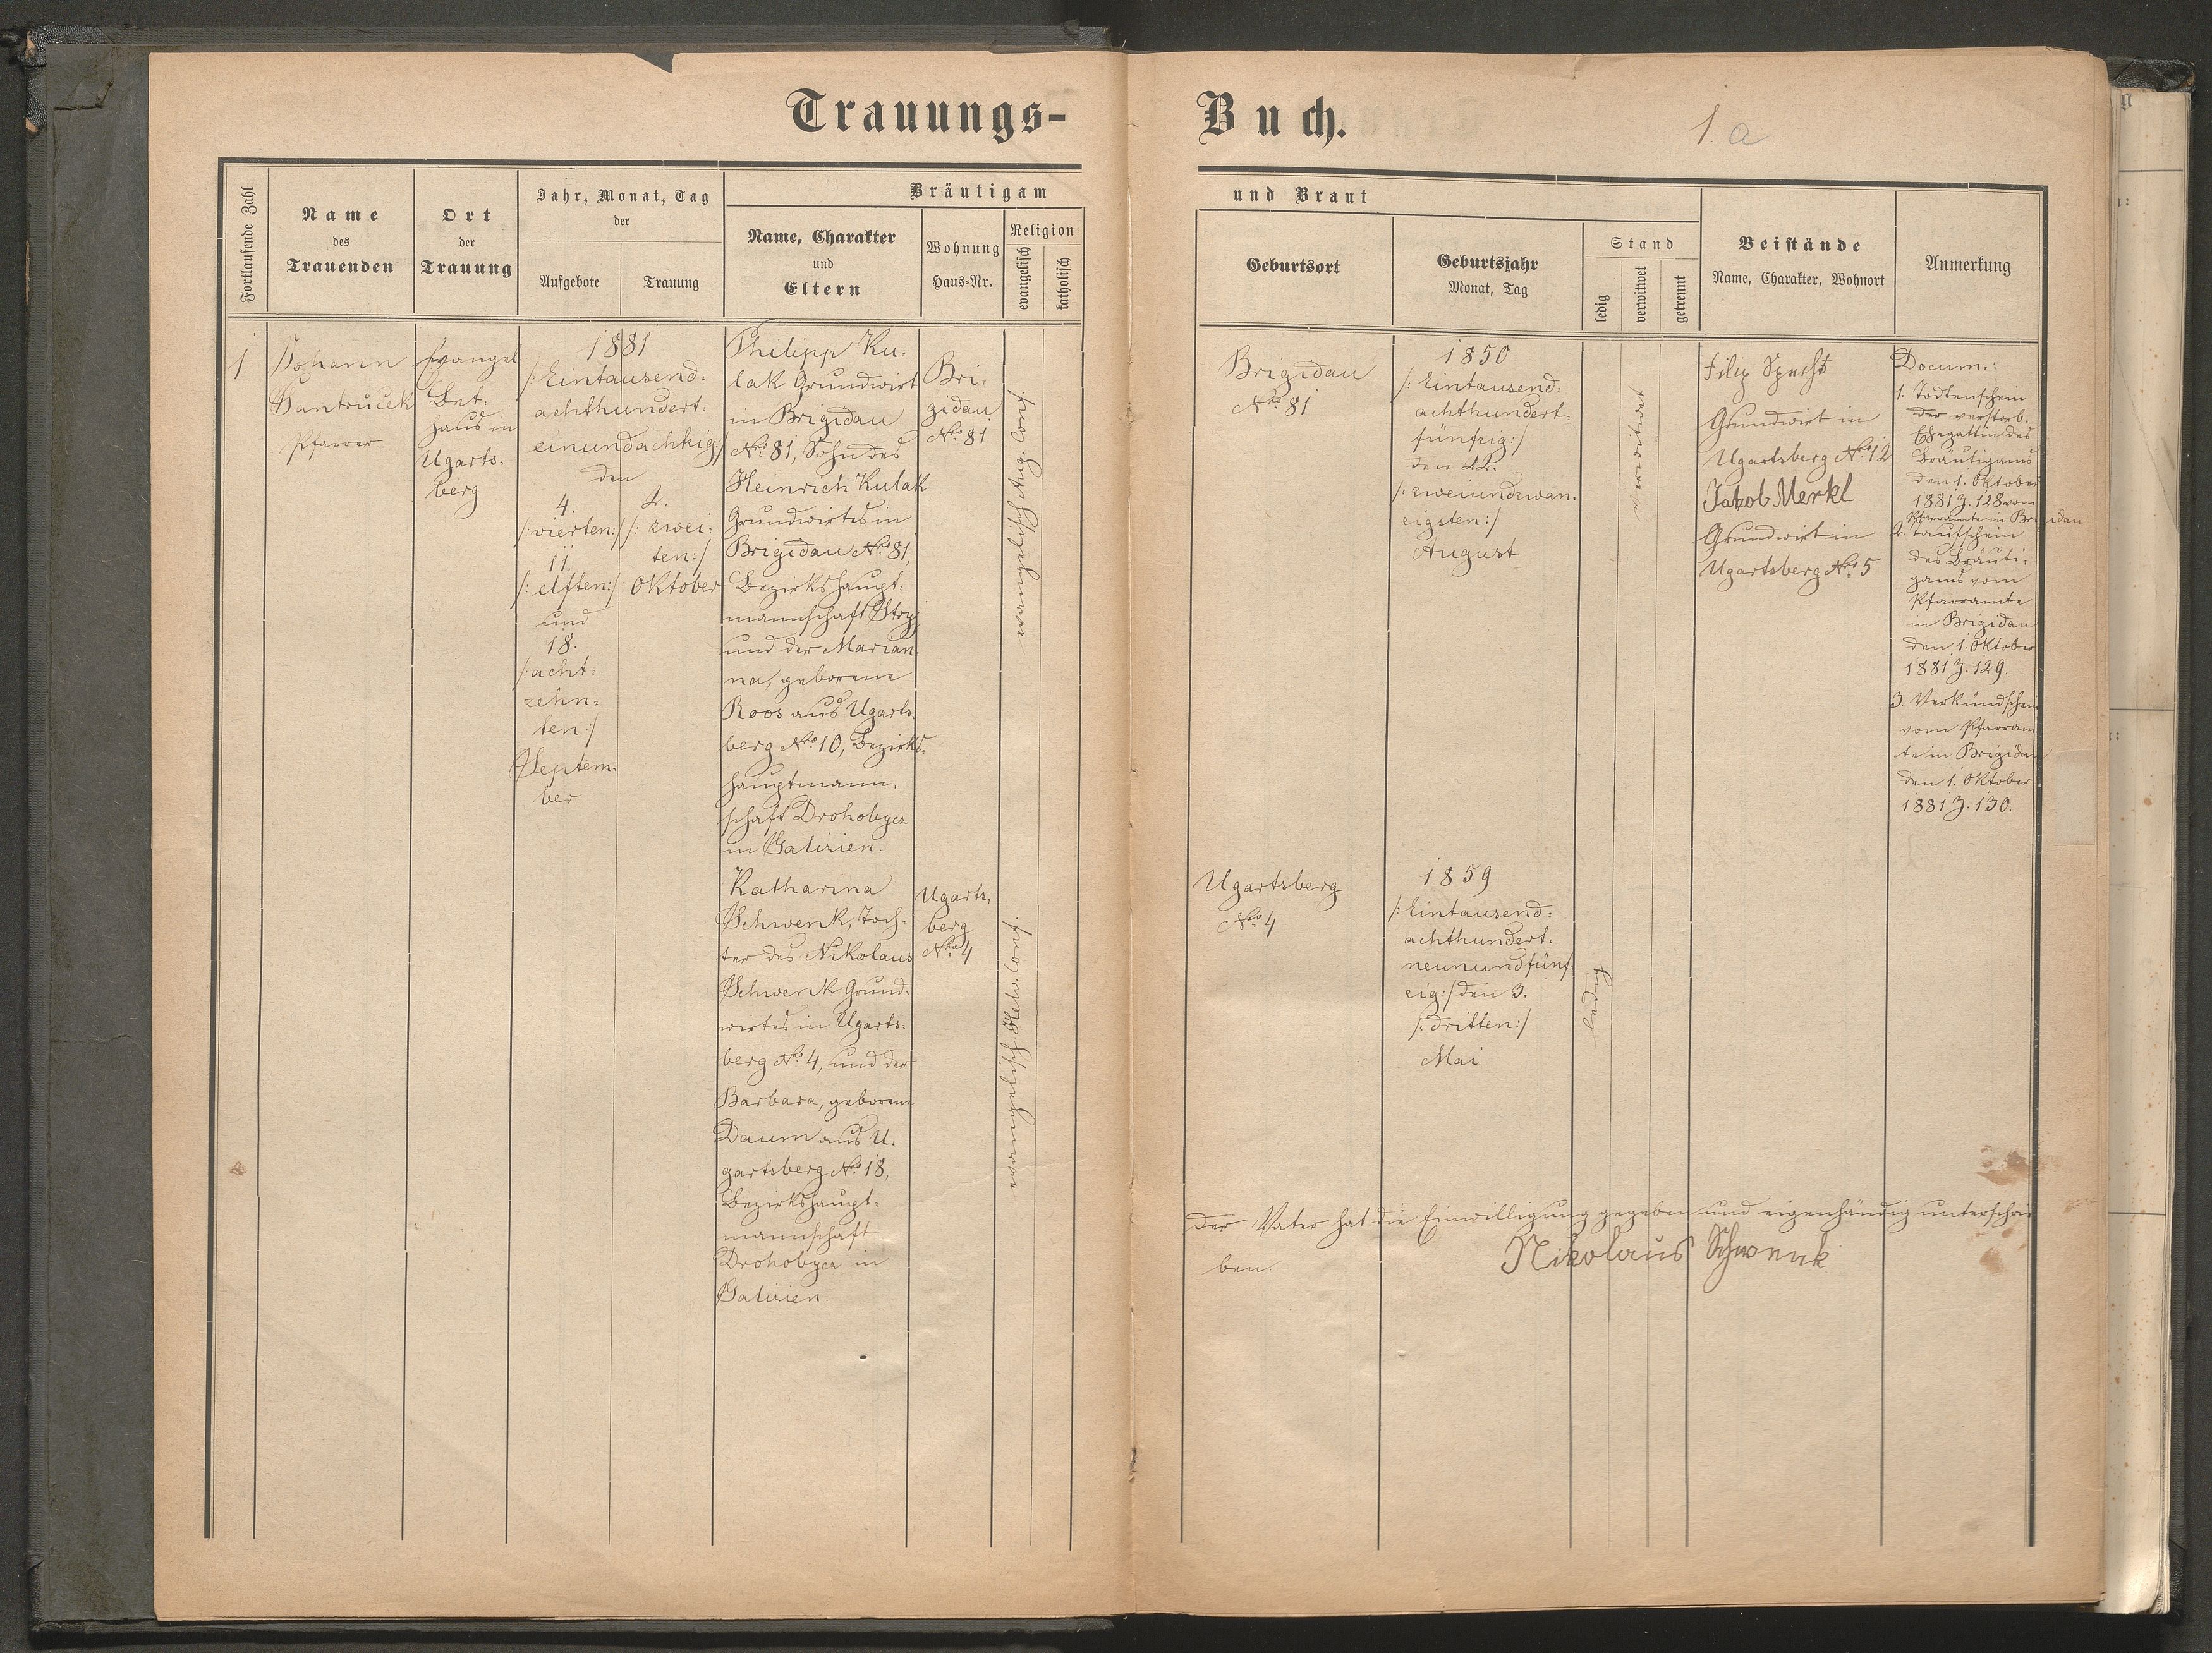 Trauungs-
Buch.
1.a
Fortlaufende Zahl
Name
des
Trauenden
Ort
der
Trauung
Jahr, Monat, Tag
der
Aufgebote
Trauung
Bräutigam
Name, Charakter
und
Eltern
Wohnung
Haus-Nr.
Religion
evangelisch
katholisch
und Braut
Geburtsort
Geburtsjahr
Monat, Tag
Stand
ledig
verwitwet
getrennt
Beistände
Name, Charakter, Wohnort
Anmerkung
1
Johann
Santrucek
Pfarrer
Evangel.
Bet-
haus in
Ugarts-
berg
1881
/:Eintausend-
achthundert-
einundachtzig:/
den
4.
/:vierten:/
11.
/:elften:/
und
18.
/:acht-
zehn-
ten:/
Septem-
ber
2.
/:zwei-
ten:/
Oktober
Philipp Ku-
lak Grundwirt
in Brigidau
Nro 81, Sohn des
Heinrich Kulak
Grundwirtes in
Brigidau Nro 81,
Bezirkshaupt-
mannschaft Stryj
und der Marian-
na, geborene
Roos aus Ugarts-
berg Nro 10, Bezirks-
hauptmann-
schaft Drohobycz
in Galizien.
Bri-
gidau
Nro 81
evangelisch Aug. Conf.
Brigidau
Nro 81
1850
/:Eintausend-
achthundert-
fünfzig:/
den 22.
/:zweiundzwan-
zigsten:/
August
verwitwet
Filip Specht
Grundwirt in
Ugartsberg Nro 12
Jakob Merkl
Grundwirt in
Ugartsberg Nro 5
Docum.:
1. Todtenschein
der verstorb.
Ehegattin des
Bräutigams
den 1. Oktober
1881 Z. 128 vom
Pfarramte in Brigidau
2. Taufschein
des Bräuti-
gams vom
Pfarramte
in Brigidau
den 1. Oktober
1881 Z. 129.
3. Verkündschein
vom Pfarram-
te in Brigidau
den 1. Oktober
1881 Z. 130.
Katharina
Schwenk, Toch-
ter des Nikolaus
Schwenk Grund-
wirtes in Ugarts-
berg Nro 4, und der
Barbara, geborene
Daum aus U-
gartsberg Nro 18,
Bezirkshaupt-
mannschaft
Drohobycz in
Galizien.
Ugarts-
berg
Nro 4
evangelisch Helv. Conf.
Ugartsberg
Nro 4
1859
/:Eintausend-
achthundert-
neunundfünf-
zig:/ den 3.
/:dritten:/
Mai
ledig
Der Vater hat die Einwilligung gegeben und eigenhändig unterschrie-
ben.
Nikolaus Schwenk